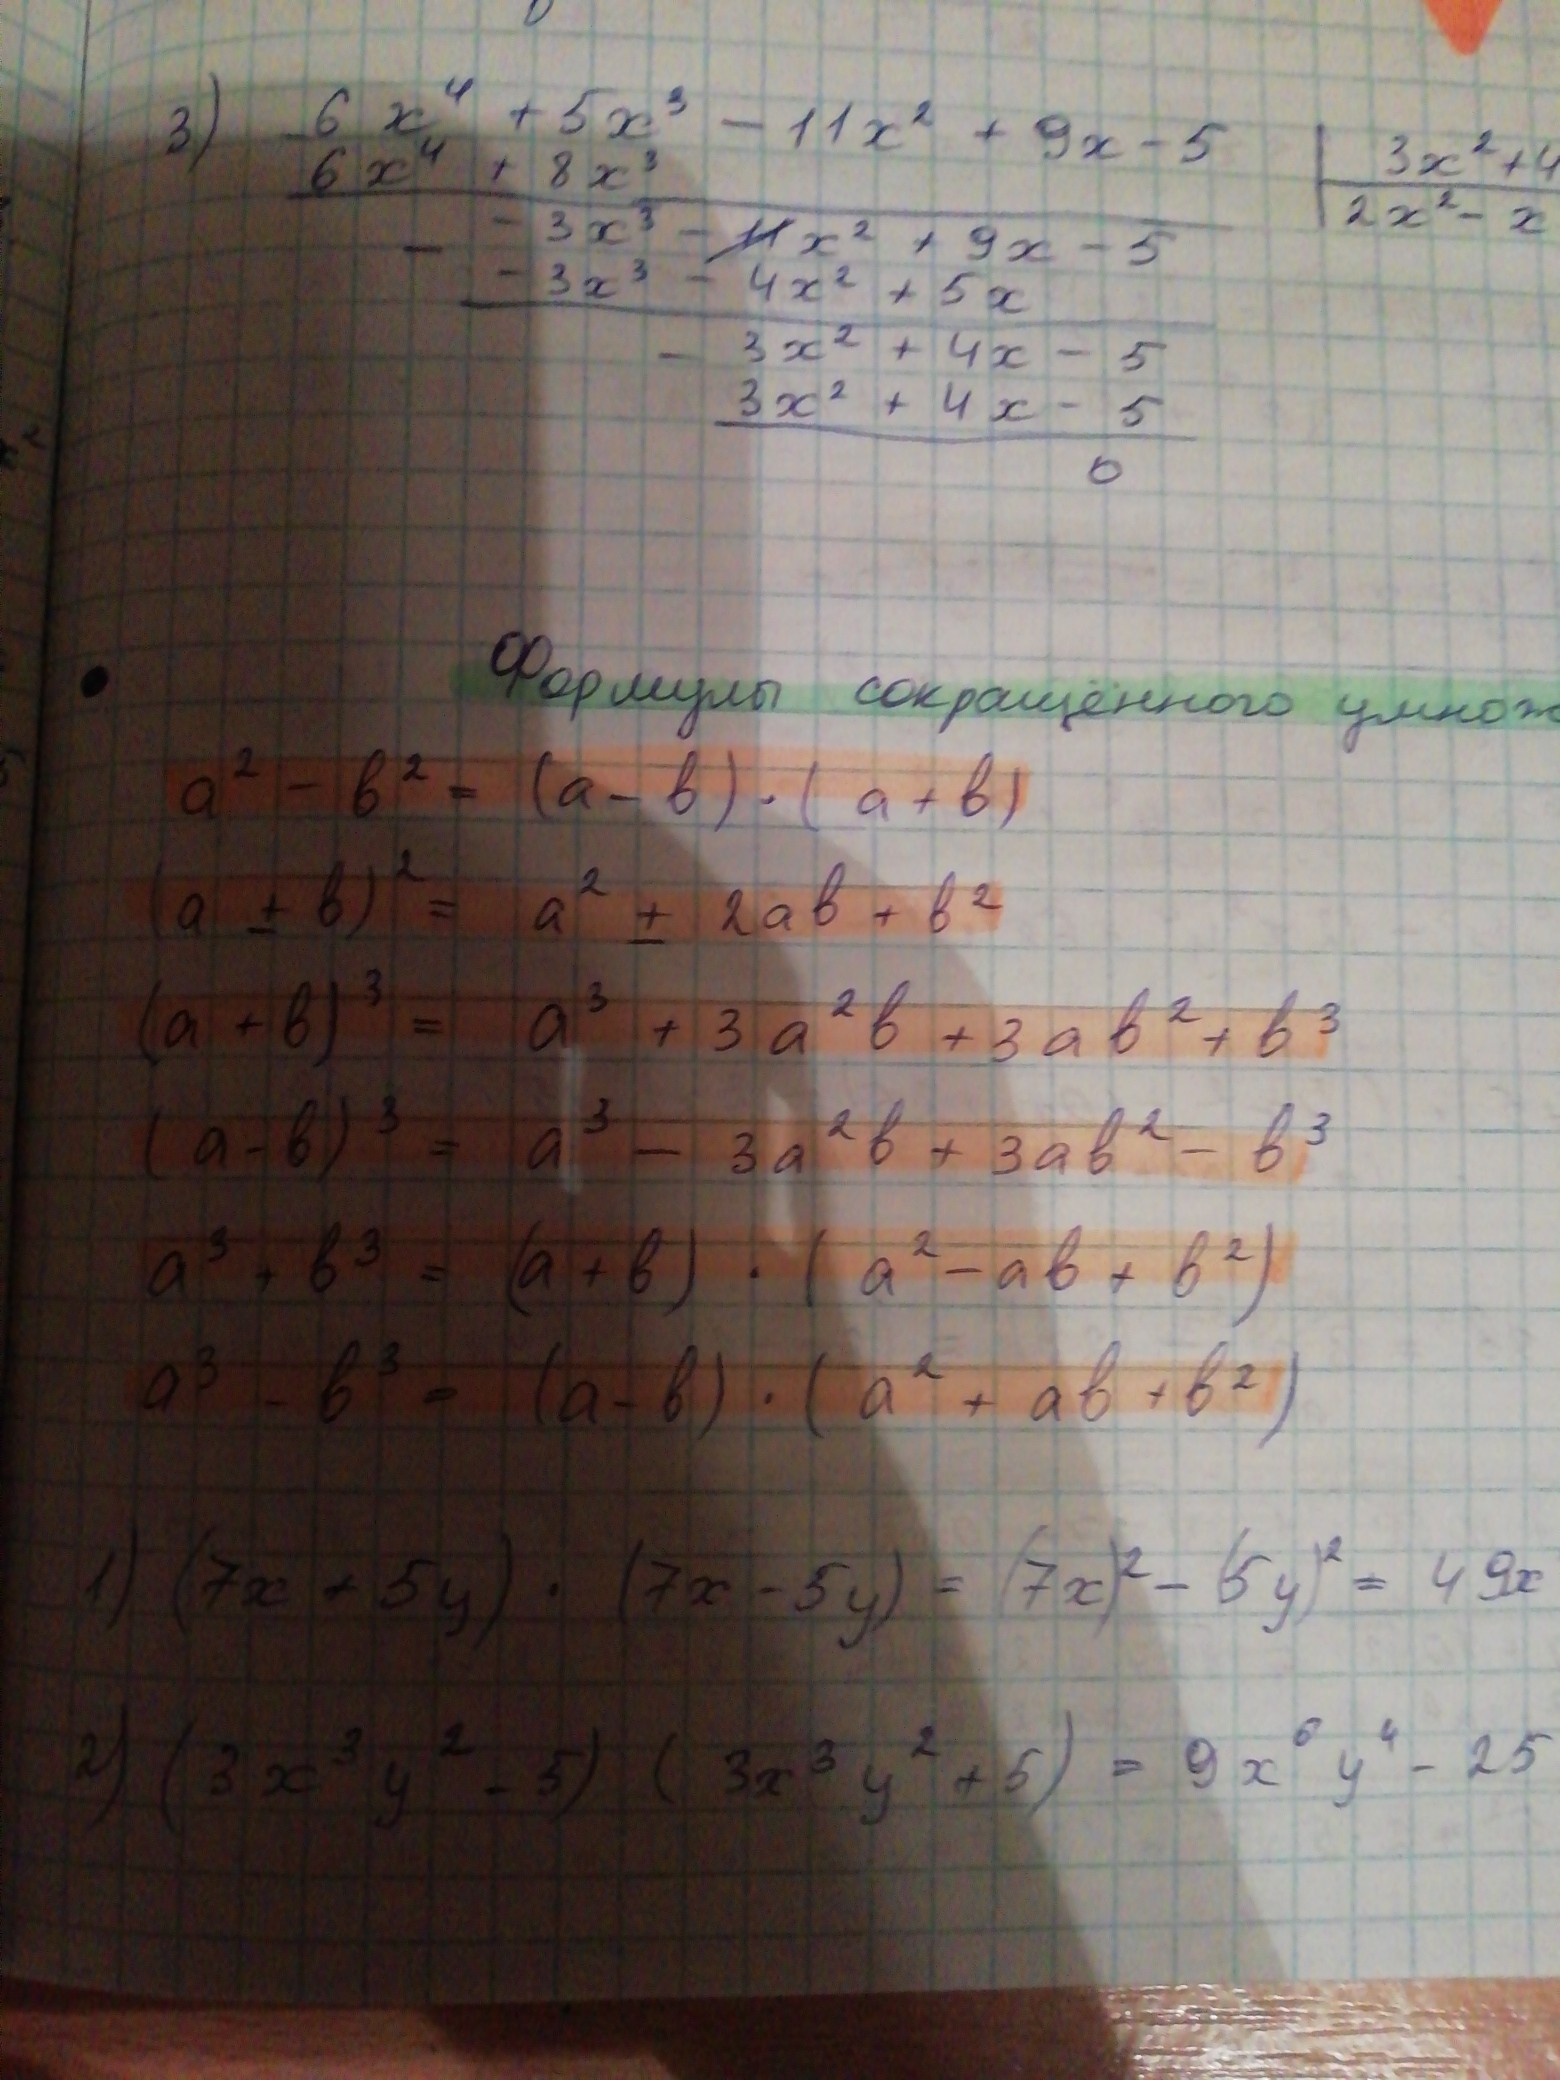 3) 6x⁴ + 5x³ - 11x² + 9x - 5 | 3x² + 4
6x⁴ + 8x³ | 2x² - x
- -3x³ - 11x² + 9x - 5
-3x³ - 4x² + 5x
- 3x² + 4x - 5
3x² + 4x - 5
0
Формулы сокращённого умнож
a² - b² = (a - b) · (a + b)
(a ± b)² = a² ± 2ab + b²
(a + b)³ = a³ + 3a²b + 3ab² + b³
(a - b)³ = a³ - 3a²b + 3ab² - b³
a³ + b³ = (a + b) · (a² - ab + b²)
a³ - b³ = (a - b) · (a² + ab + b²)
1) (7x + 5y) · (7x - 5y) = (7x)² - (5y)² = 49x
2) (3x³y² - 5) (3x³y² + 5) = 9x⁶y⁴ - 25